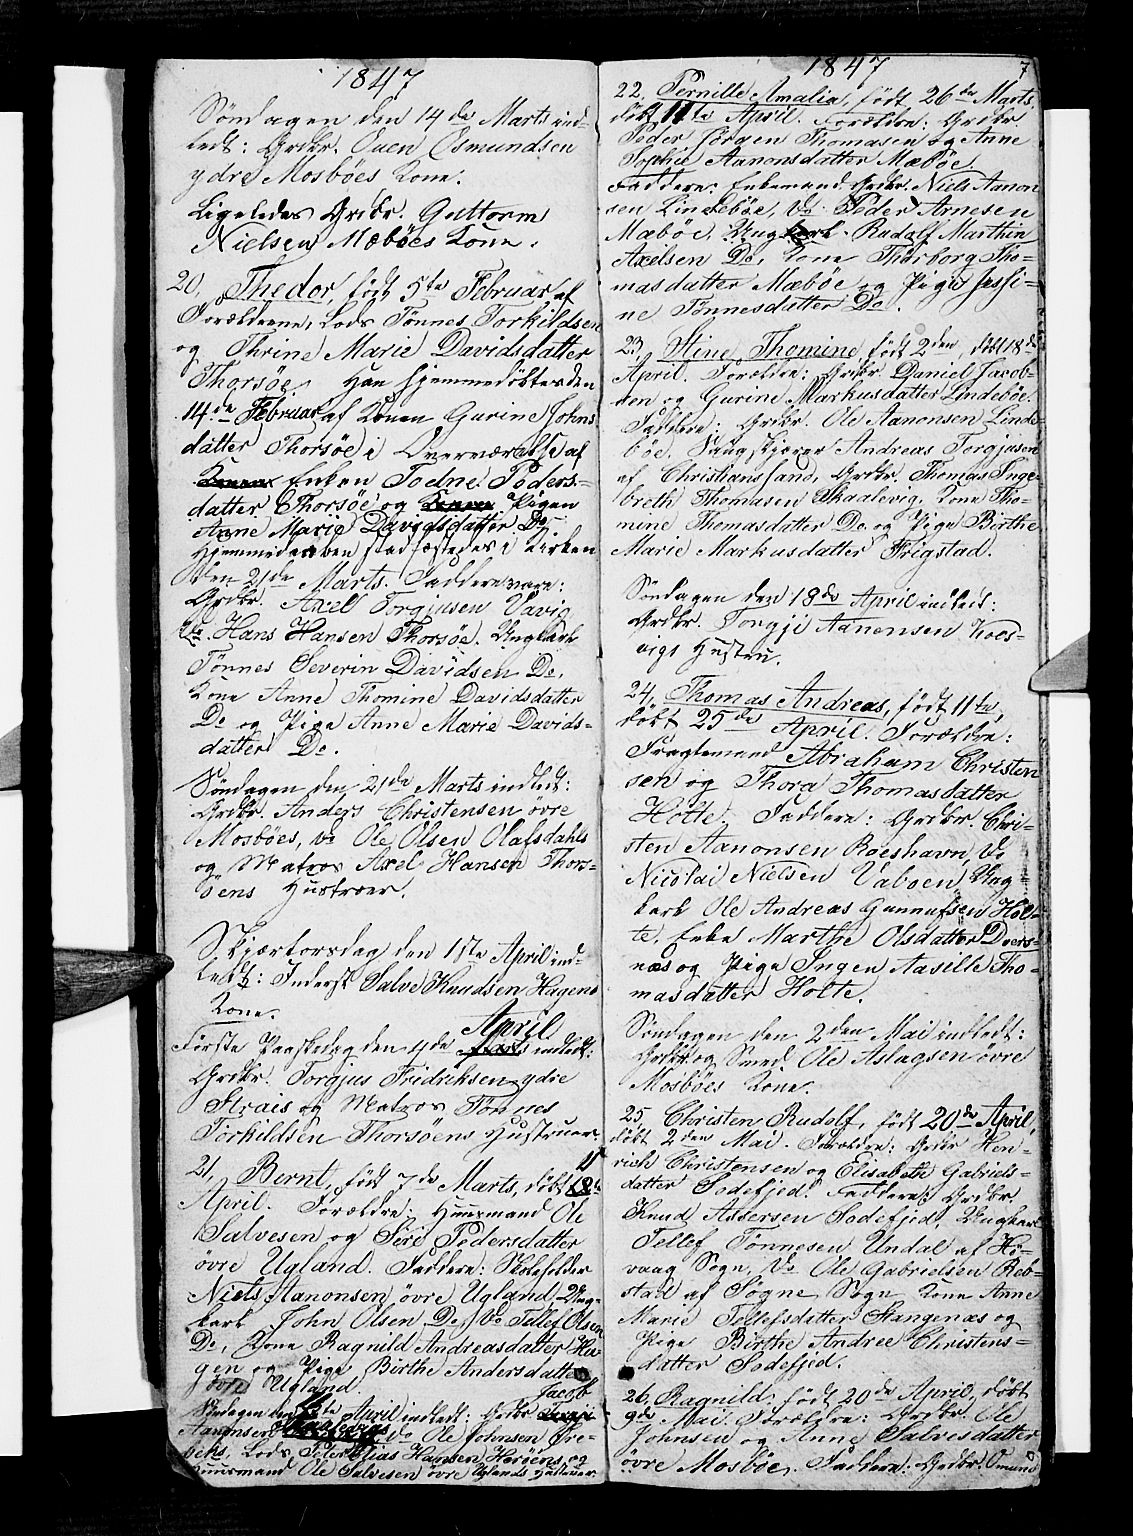 1847
Söndagen den 14de Marts ind-
ledt: Grdbr. Ouen Osmundsen
ydre Mosböes Kone.
Ligeledes Grdbr. Guttorm
Nielsen Mæböes Kone.
20, Thedor, födt 5te Februar, af
Forældrene, Lods Tönnes Torkildsen
og Thrine Marie Davidsdatter
Thorsöe. Han hjemmedöbtes den
14de Februar af Konen Gurine Johns
datter Thorsöe i Overværelse af
Enken Todne Peders-
datter Thorsöe og Pigen
Anne Marie Davidsdatter Do
Hjemmedaaben stadfæstedes i Kirken
den 21de Marts. Faddere vare:
Grdbr. Axel Torgjusen Vavig
Do Hans Hansen Thorsöe. Ungkarl
Tönnes Severin Davidsen Do,
Kone Anne Thomine Davidsdatter
Do og Pige Anne Marie Davids-
datter Do.
Söndagen den 21de Marts indledt:
Grdbr. Anders Christensen övre
Mosböes, do Ole Olsen Olafsdahls
og Matros Axel Hansen Thor-
söens Hustruer.
Skjærtorsdag den 1ste April ind-
ledt: Inderst Salve Knudsen Hagens
Kone.
April
Förste Paaskedag den 4de indledt:
Grdbr. Torgjus Fridriksen ydre
Strais og Matros Tönnes
Torkildsen Thorsöens Hustruer.
21, Bernt, födt 7de Marts, döbt 11
April. Forældre: Huusmand Ole
Salvesen og Siri Pedersdatter
övre Ugland. Faddere: Skoleholder
Niels Aanonsen övre Ugland, Ung-
karl John Olsen Do, do Tellef Olsen
Do, Kone Ragnild Andreasdatter Ha-
gen og Pige Birthe Andersdatter
övre Ugland.
Jacob
Söndagen den 11te April indledt: Grdbr.
Aanonsen do Ole Johnsen
Lods Peter Elias Hansen og
Huusmand Ole Salvesen övre Uglands Hustruer.
1847
7
22, Pernille Amalia, födt 26de Marts,
döbt 11te April. Forældre: Grdbr
Peder Jörgen Thomasen og Anne
Sophie Aanonsdatter Mæböe
Faddere: Enkemand Grdbr. Niels Aanon
sen Lindeböe, do Peder Arnesen
Mæböe, Ungkarl Rudolf Marthin
Axelsen Do, Kone Thorborg Tho-
masdatter Mæböe og Pige Jossi-
ne Tönnesdatter Do.
23, Stine Thomine, födt 2den, döbt 18de
April. Forældre: Grdbr. Daniel Jacob-
sen og Gurine Markusdatter Lindeböe.
Faddere: Grdbr. Ole Aanonsen Linde-
böe, Andreas Torgjusen
af Christianssand, Grdbr. Thomas Inge-
breth Thomasen Skaalevig, Kone Tho-
mine Thomasdatter Do og Pige Birthe
Marie Markusdatter Frigstad.
Söndagen den 18de April indledt:
Grdbr. Torgji Aanensen Koes-
vigs Hustru.
24, Thomas Andreas, födt 11te,
döbt 25de April. Forældre:
Fragtemand Abraham Christen
sen og Thora Thomasdatter
Holte. Faddere: Grdbr. Chri-
sten Aanonsen Roeshavn, do
Nicolai Nielsen Vaboen, Ung-
karl Ole Andreas Gunnufsen Hol-
te, Enke Marthe Olsdatter Dvers-
næs og Pige Ingen Aasille Tho-
masdatter Holte.
Söndagen den 2den Mai indledt:
Grdbr og Smed Ole Aslagsen övre
Mosböes Kone.
25, Christen Rudolf, födt 20de April,
döbt 2den Mai. Forældre: Grdbr Hen-
rich Christensen og Elisabeth Gabriels-
datter Sodefjed. Faddere: Grdbr.
Knud Assersen Sodefjed, Ungkarl
Tellef Tönnesen Undal af Hö-
vaag Sogn, do Ole Gabrielsen Reb-
stad af Sögne Sogn, Kone Anne
Marie Tellefsdatter Stangenæs og
Pige Birthe Andree Christens-
datter Sodefjed.
26, Ragnild, födt 20de April, döbt
9de Mai. Forældre: Grdbr. Ole
Johnsen og Anne Salvesdatter
övre Mosböe. Faddere: Grdbr. Osmund